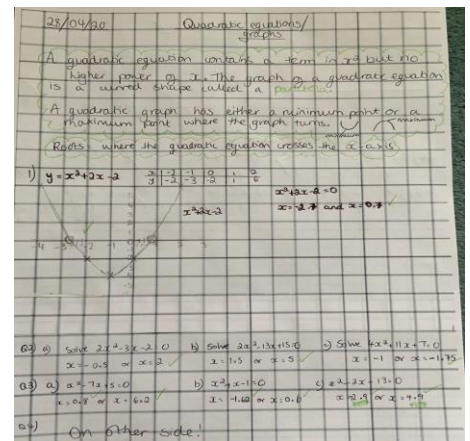 28/04/20
Quadratic equations/
graphs
A quadratic equation contains a term in x² but no
higher power of x. The graph of a quadratic equation
is a curved shape called a
A quadratic graph has either a minimum point or a
maximum point where the graph turns.
Roots: where the quadratic equation crosses the x-axis
1) y = x²+2x-2
x -2 -1 0 1 2
y -2 -3 -2 1 6
x²+2x-2=0
x²+2x-2
x=-2.7 and x=0.7
Q2) a) Solve 2x²-3x-2=0 b) Solve 2x²-13x+15=0 c) Solve 4x²+11x+7=0
x=-0.5 or x=2 x=1.5 or x=5 x=-1 or x=-1.75
Q3) a) x²-7x+5=0 b) x²+x-1=0 c) x²-2x-13=0
x=0.8 or x=6.2 x=-1.62 or x=0.6 or x=4.9
Q4) On other side!